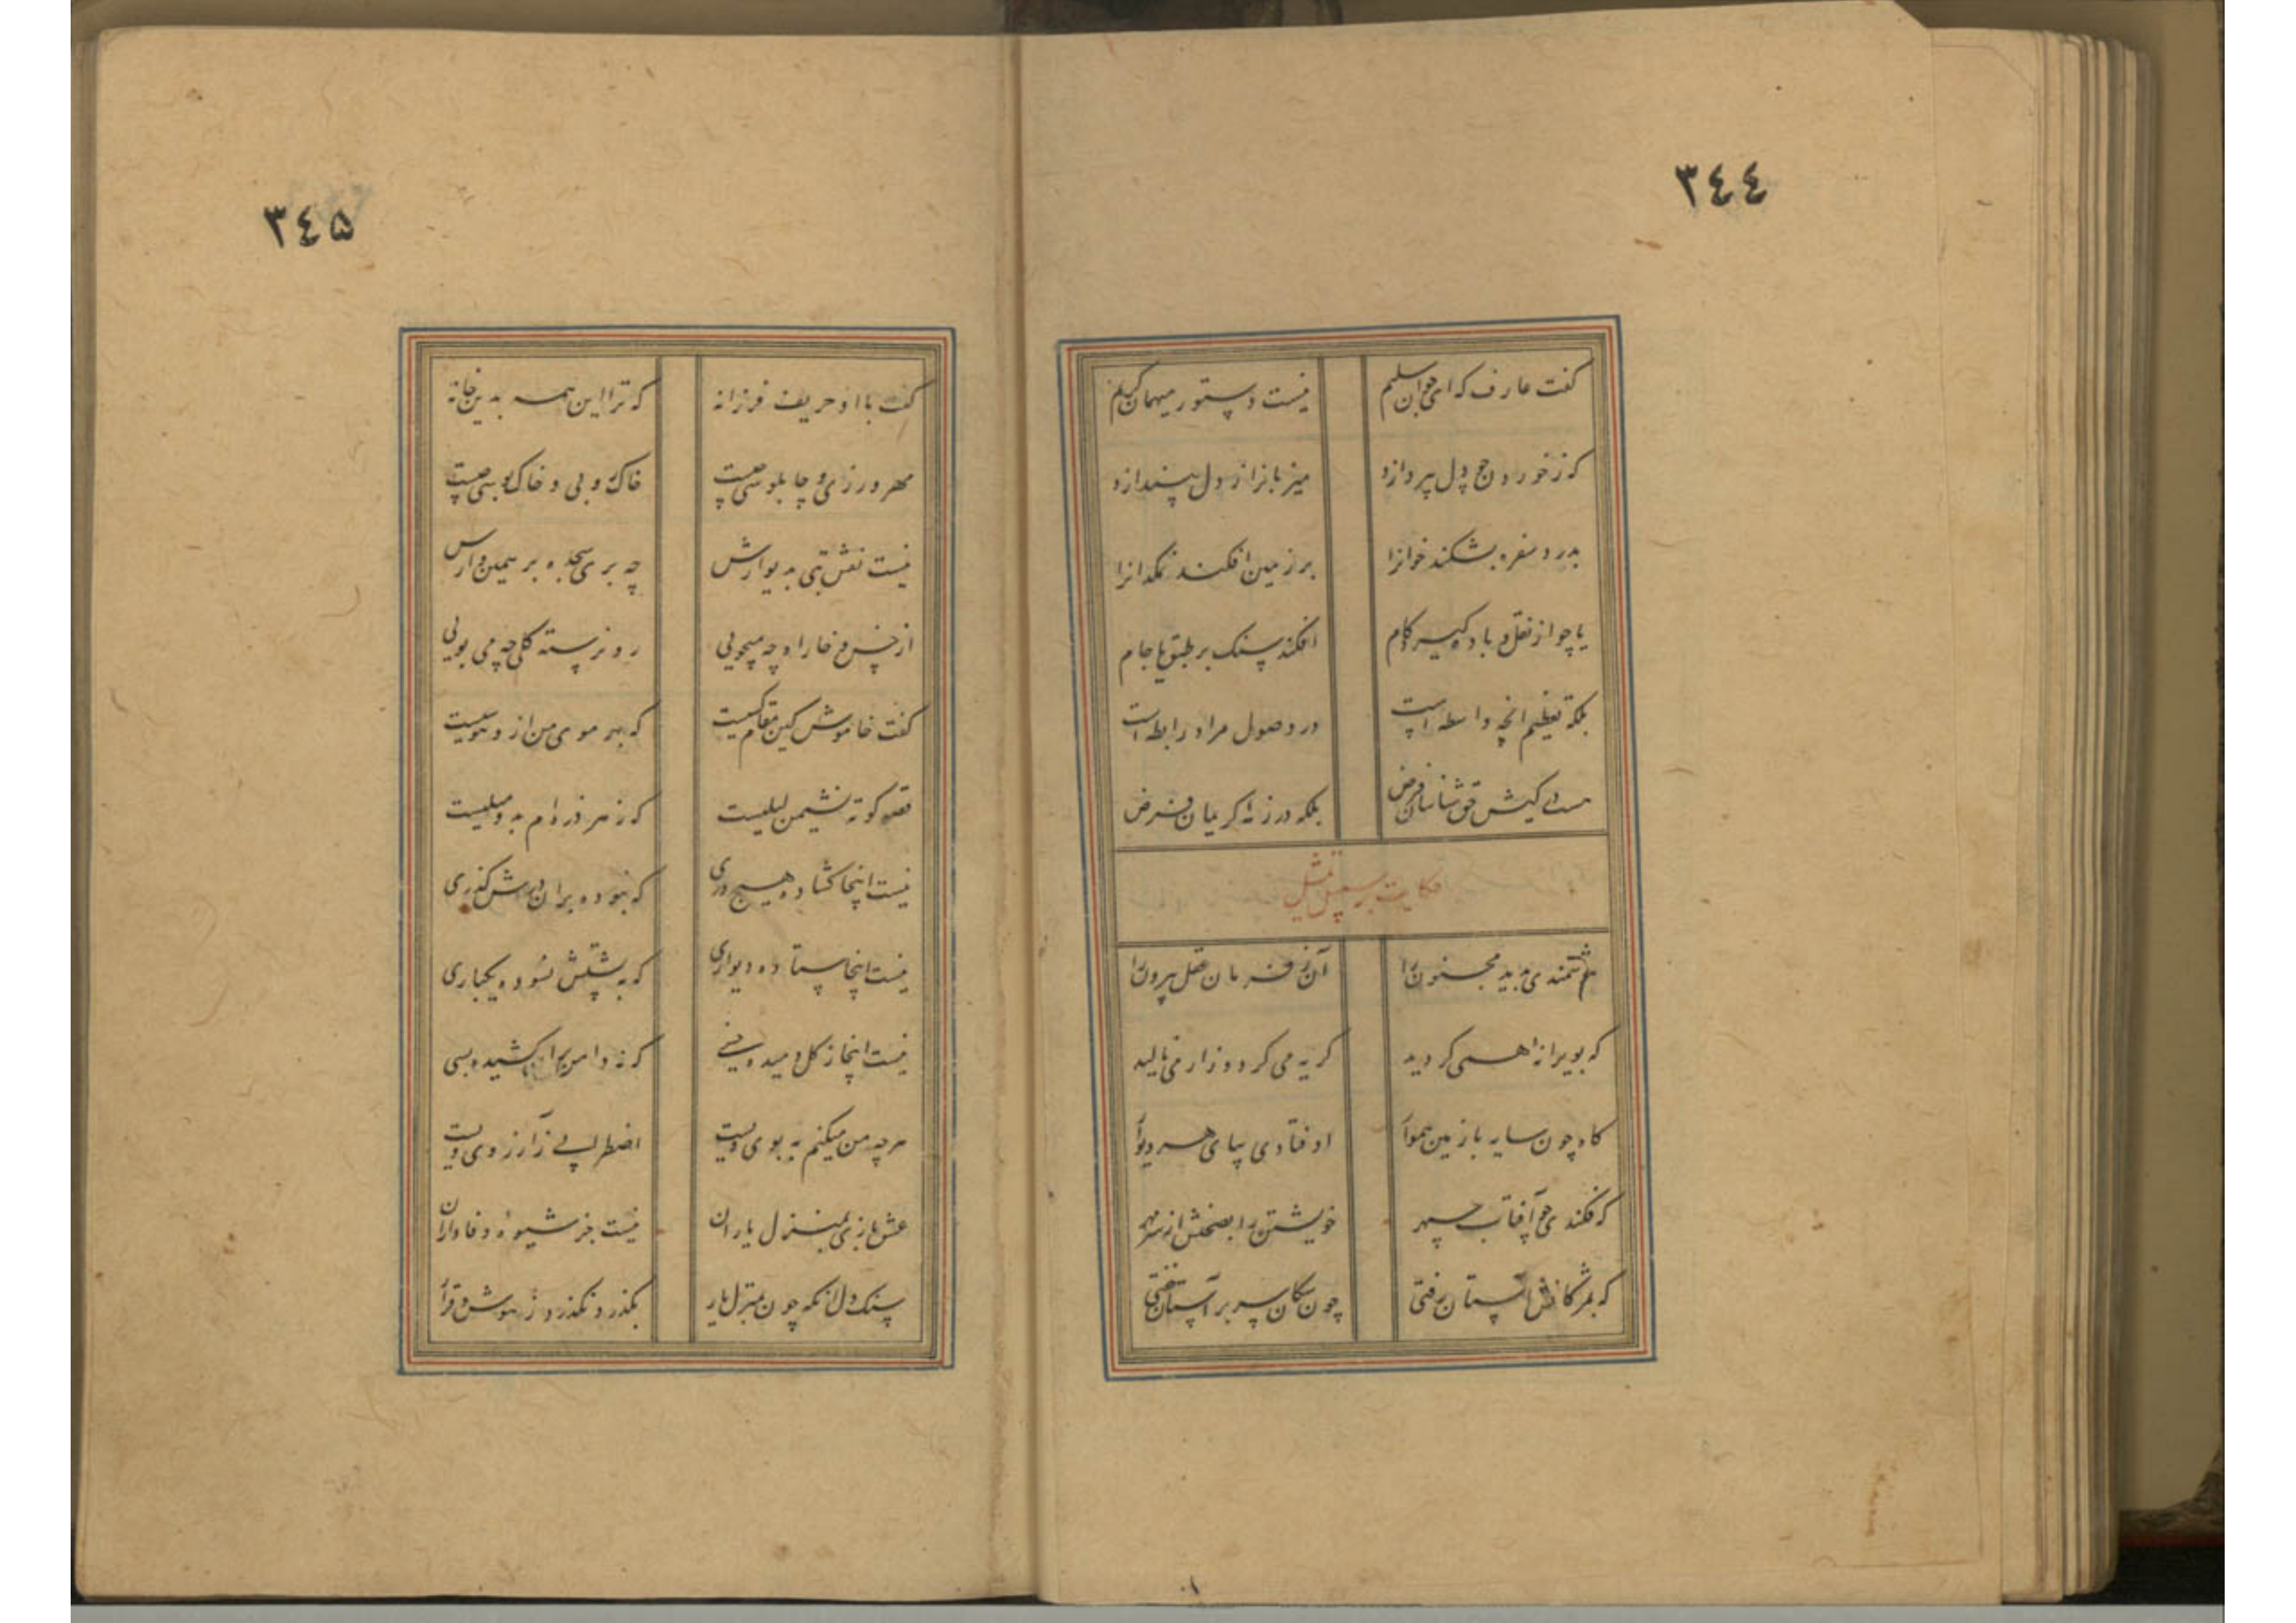 ٣٤٤
گفت عارف که ای جوان سلیم نیست دستور میهمان کریم
که ز خوردن چو دل بپردازد میزبان را ز دل بیندازد
بدرد سفره بشکند خوانرا بر زمین افکند نمکدانرا
یا چو از نقل و باده گیرد کام افکند سنگ بر طبق یا جام
بلکه تعظیم آنچه واسطه است در وصول مراد رابطه است
هست در کیش حق شناسان فرض بلکه در ذمه کریمان فرض
حکایت بر سبیل تمثیل
هوشمندی بدید مجنون را آن ز فرمان عقل بیرون را
که بویرانه همی گردید گریه می کرد و زار می نالید
گاه چون سایه با زمین هموار اوفتادی بپای هر دیوار
که فکندی چو آفتاب سپهر خویشتن را بصحنش از سر مهر
که بمژگانش آستان رفتی چون سگان سر بر آستان خفتی
٣٤۵
گفت با او حریف فرزانه که ترا این همه بدین خانه
مهر ورزی و چاپلوسی چیست خاک روبی و خاک بوسی چیست
نیست نقش بتی بدیوارش چه بری سجده برهمن وارش
از خس و خار او چه میجویی رو نرسته گلی چه می بویی
گفت خاموش کین مقام کسیست که بهر موی من ازو هوسیست
قصه کوته نشیمن لیلیست که ز هر ذره ام بدو میلیست
نیست اینجا گشاده هیچ دری که نبوده بر آن درش گذری
نیست اینجا ستاده دیواری که به پشتش نسوده یکباری
نیست اینجا ز گل دمیده خسی که نه دامن بر آن کشیده بسی
هر چه من میکنم به بوی ویست اضطرابی ز آرزوی ویست
عشق بازی بمنزل یاران نیست جز شیوه وفاداران
سنگ دل آنکه چون بمنزل یار بگذرد نگذرد ز هوش و قرار